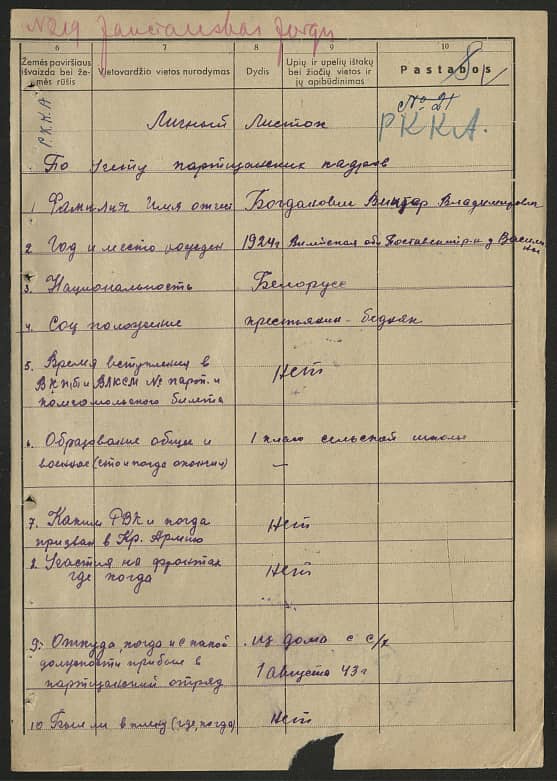 №219
6 7 8 9 10
Žemės paviršiaus išvaizda bei žemės rūšis
Vietovardžio vietos nurodymas
Dydis
Upių ir upelių ištakų bei žiočių vietos ir jų apibūdinimas
Pastabos
8
Р.К.К.А
№ 21
РККА.
Личный Листок
По учету партизанских кадров
1 Фамилия Имя отчест Богданович Виктор Владимирович
2 Год и место рожден 1924г Вилейская обл Поставский р-н д
3. Национальность Белорусс
4. Соц положение крестьянин - бедняк
5. Время вступления в Нет
ВКП/б и ВЛКСМ № парт. и
комсомольского билета
6. Образование общее и 1 класс сельской школы
военное (сто и когда окончил) —
7. Каким РВК и когда Нет
призван в Кр. Армию
8. Участия на фронтах Нет
где когда
9. Откуда, когда и с какой из дома с с/х
должности прибыл в 1 Августа 43 г
партизанский отряд
10 Был ли в плену (где, когда) Нет